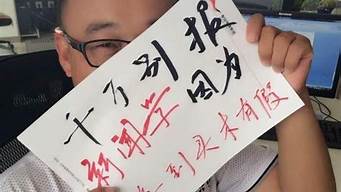 千万别报
新闻学 因为
到头来木有假